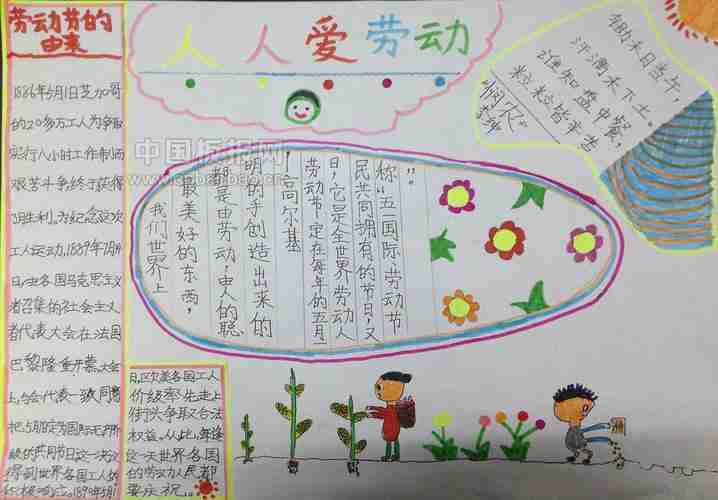 劳动节的
由来
1886年5月1日芝加哥
的20多万工人为争取
实行八小时工作制而
艰苦斗争终于获得
了胜利。为纪念这次
工人运动，1889年7月14
日，由各国马克思主义
者召集的社会主义
者代表大会在法国
巴黎隆重开幕，大会
上，与会代表一致同意
把5月1定为国际无产阶
级的共同节日这一决议
得到世界各国工人的
1890年5月1
日，区欧美各国工人
阶级率先走上
街头争取合法
权益。从此，每逢
这一天世界各国
的劳动人民都
要庆祝。
人人爱劳动
中国板报网
锄禾日当午，
汗滴禾下土。
谁知盘中餐，
粒粒皆辛苦
《悯农》
我们世界上
最美好的东西，
都是由劳动，由人的聪
明的手创造出来的
，高尔基
劳动节定在每年的五月一
日，它是全世界劳动人
民共同拥有的节日，又
称“五一国际劳动节
”。